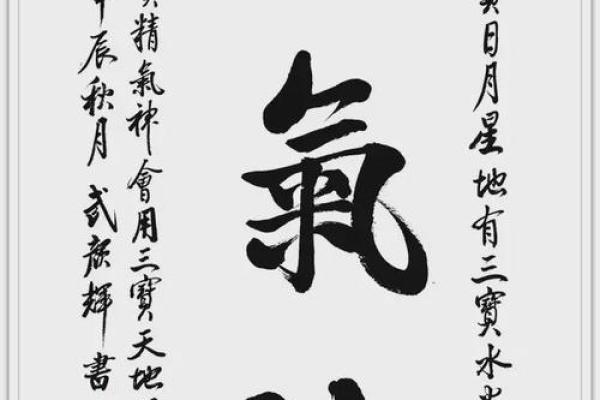 日月星地有三寶水
氣
精氣神會用三寶天地
辰秋月 武顏輝 書